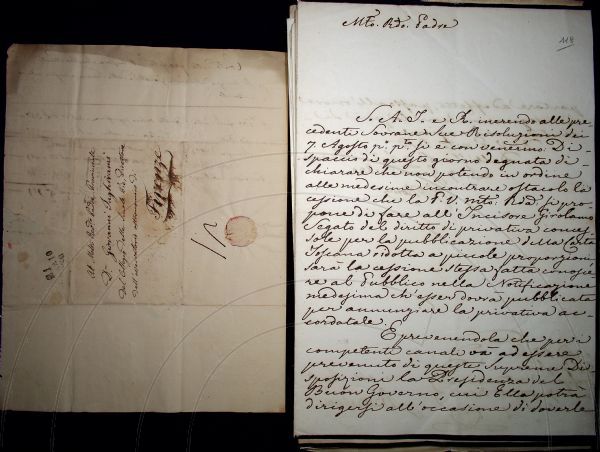 Al Molto Revdo Padre
D. Giovanni Inghirami
Firenze
Mto. Rdo. Padre
118
S. A. I. e R. inerendo alle pre
cedenti Sovrane Sue Risoluzioni dei
7. Agosto po. po. si è con venerato Di-
spaccio di questo giorno degnata di-
chiarare che non potendo in ordine
alle medesime incontrare ostacolo la
cessione che la P. V. Mto. Rda. si pro-
pone di fare all'Incisore Girolamo
Segato del diritto di privativa conces-
sole per la pubblicazione della Carta
Toscana ridotta a piccole proporzioni
sarà la cessione stessa fatta conosce-
re al Pubblico nella Notificazione
medesima ch'esser dovrà pubblicata
per annunziare la privativa ac-
cordatale.
E prevenendola che per i
competenti canali và ad essere
prevenuto di queste Supreme Di-
sposizioni la Presidenza del
Buon Governo, cui Ella potrà
dirigersi all'occasione di doverle